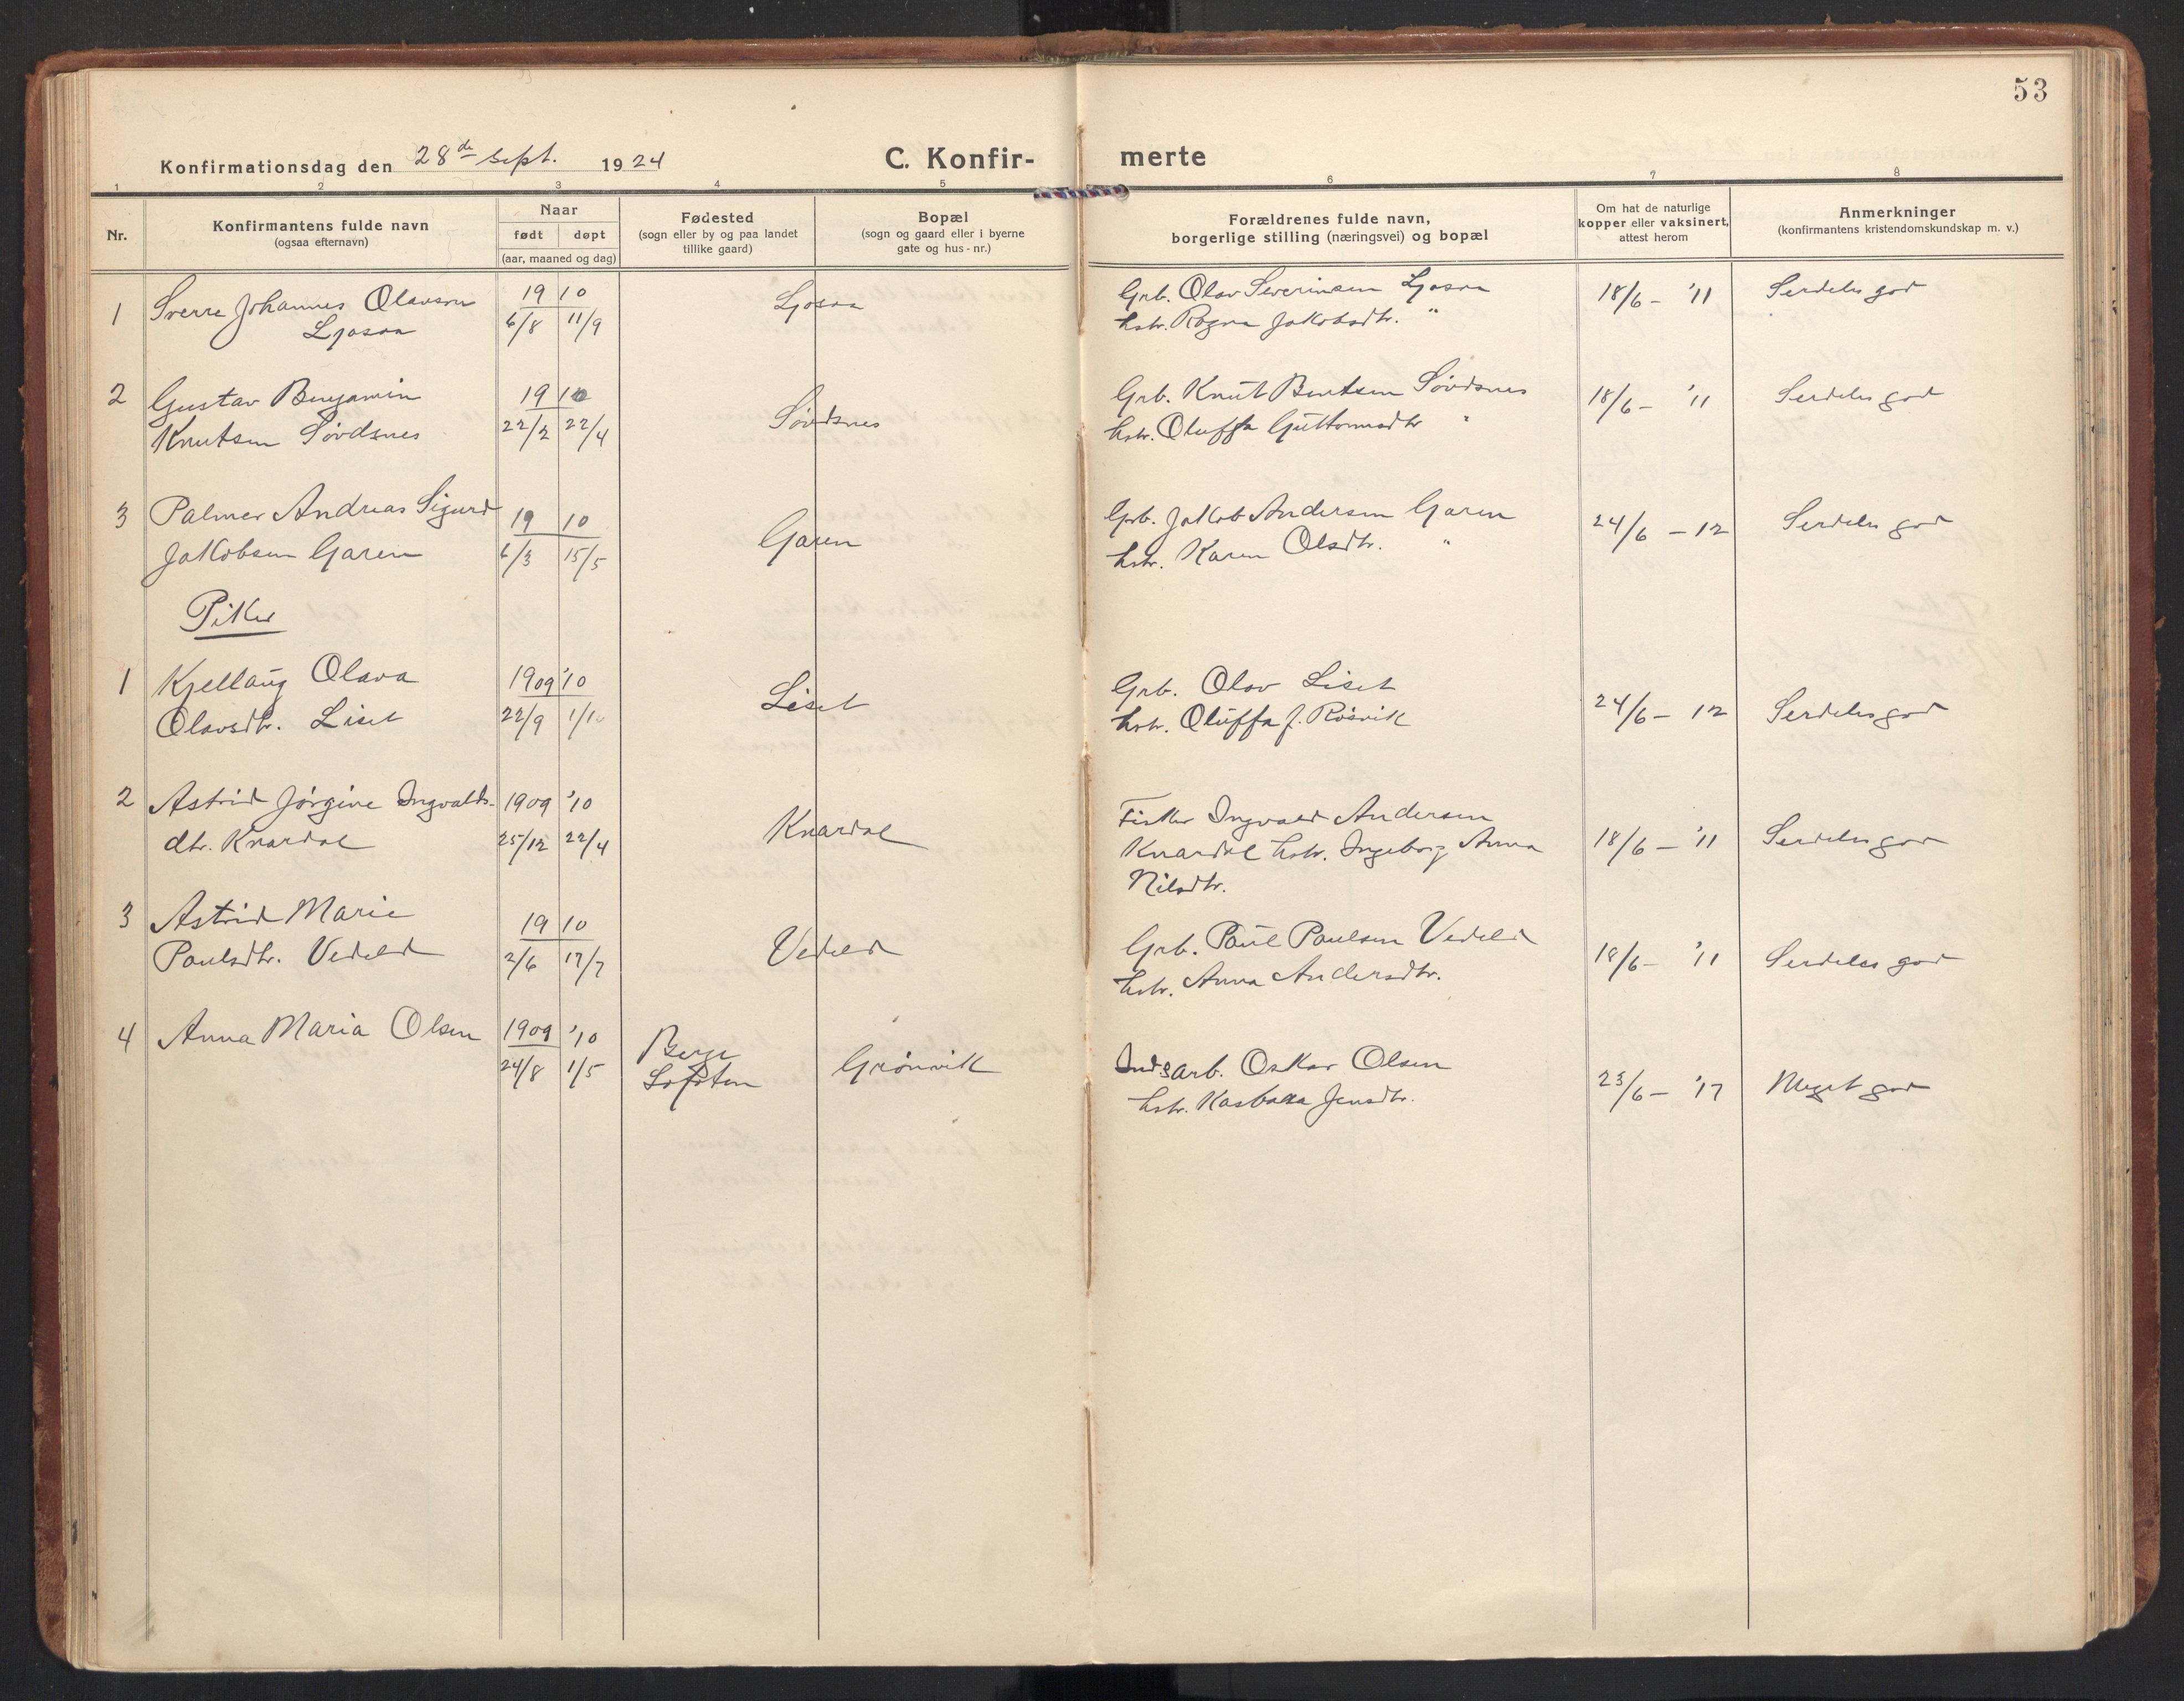 53
Konfirmationsdag den 28de sept. 1924
C. Konfir- merte
1 2 3 4 5 6 7 8
Nr.
Konfirmantens fulde navn
(ogsaa efternavn)
Naar
født døpt
(aar, maaned og dag)
Fødested
(sogn eller by og paa landet
tillike gaard)
Bopæl
(sogn og gaard eller i byerne
gate og hus-nr.)
Forældrenes fulde navn,
borgerlige stilling (næringsvei) og bopæl
Om hat de naturlige
kopper eller vaksinert,
attest herom
Anmerkninger
(konfirmantens kristendomskundskap m. v.)
1 Sverre Johannes Olavson 19 10 Ljosaa Grb. Olav Severinsen Ljosaa 18/6 - '11 Serdeles god
Ljosaa 6/8 11/9 hstr. Ragna Jakobsdtr. "
2 Gustav Benjamin 19 10 Søvdsnes Grb. Knut Bentsen Søvdsnes 18/6 - '11 Serdeles god
Knutsen Søvdsnes 22/2 22/4 hstr. Oluffa Guttormsdtr "
3 Palmer Andreas Sigurd 19 10 Garen Grb. Jakob Andersen Garen 24/6 - 12 Serdeles god
Jakobsen Garen 6/3 15/5 hstr. Karen Olsdtr. "
Piker
1 Kjellaug Olava 1909 '10 Liset Grb. Olav Liset 24/6 - 12 Serdeles god
Olavsdtr. Liset 22/9 1/1 hstr. Oluffa J. Røsvik
2 Astrid Jørgine Ingvalds- 1909 '10 Knardal Fisker Ingvald Andersen 18/6 - '11 Serdeles god
dtr. Knardal 25/12 22/4 Knardal hstr. Ingeborg Anna
Nilsdtr.
3 Astrid Marie 19 10 Vedeld Grb. Paul Paulsen Vedeld 18/6 - '11 Serdeles god
Paulsdtr. Vedeld 2/6 17/7 hstr. Anna Andersdtr.
4 Anna Maria Olsen 1909 '10 Berge Grönvik Indsarb. Oskar Olsen 23/6 - '17 Meget god
24/8 1/5 Lofoten hstr. Jensdtr.